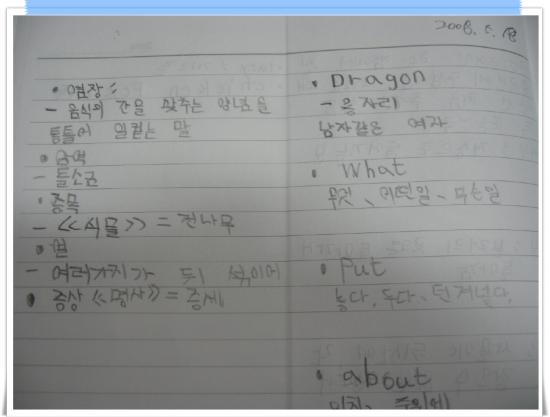 2008. 6.
• 염장 :
- 음식의 간을 맞추는 양념을
통틀어 일컫는 말
• 금역
- 들소군
• 종목
- <<식물>> = 전나무
- 여러가지가 뒤 섞이어
• 증상 <<명사>> = 증세
• Dragon
- 용자리
남자같은 여자
• What
무엇、어떤일、무슨일
• Put
놓다, 두다、던져넣다,
• about